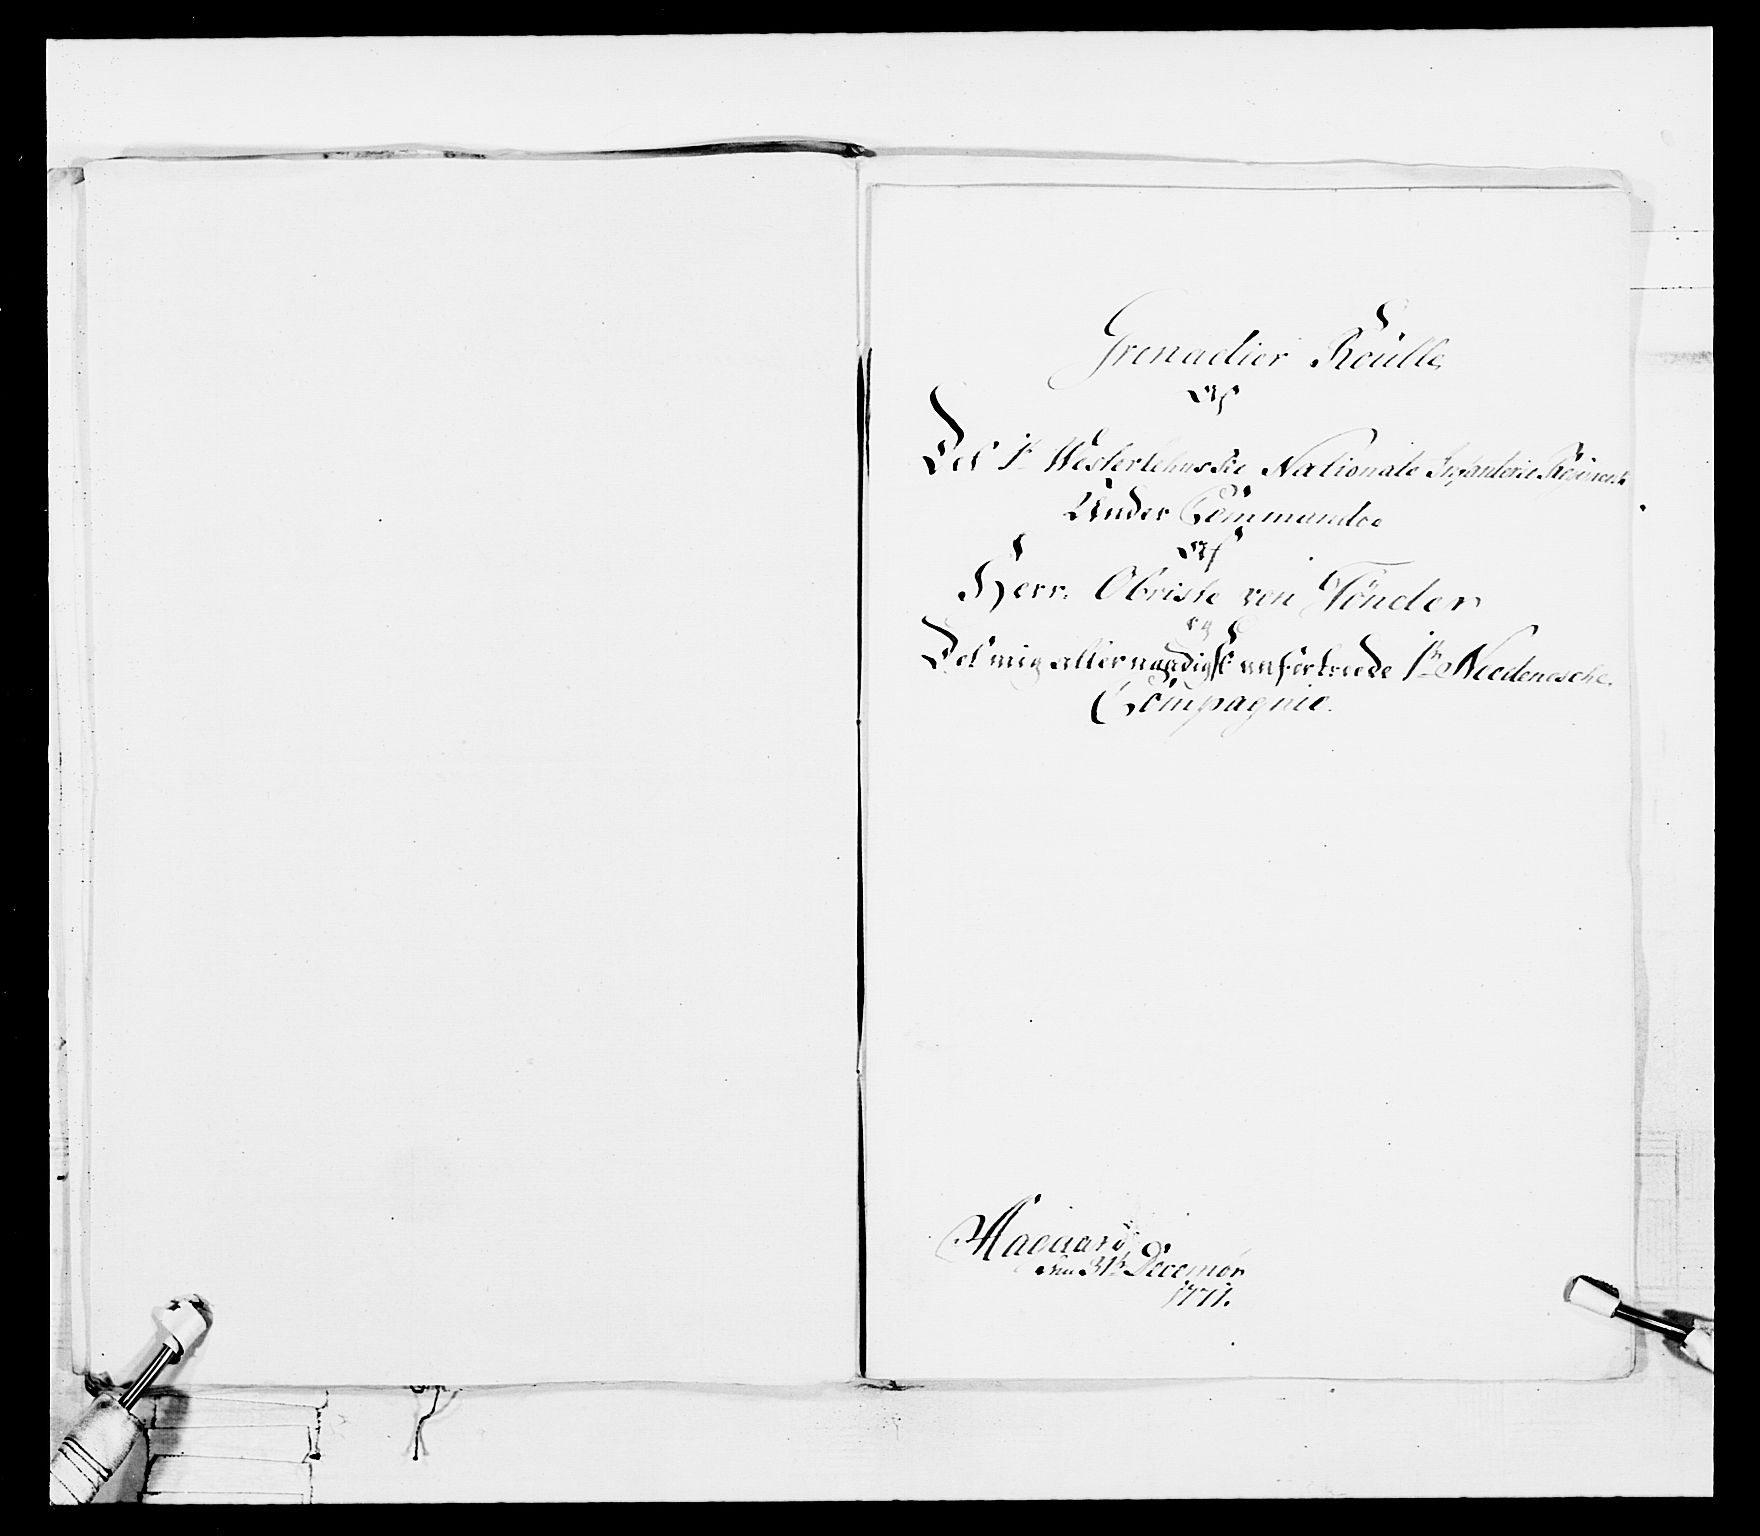 Grenadier Roulle
Af
Det 1te Westerlehnsske Nationale Infanterie Regiment
Under Commando
Af
Herr Obriste von Tönder
og
Det mig allernaadigst anfortroede 1te Needenesche
Compagnie.
Aagaard
den 31te Decembr
1771.